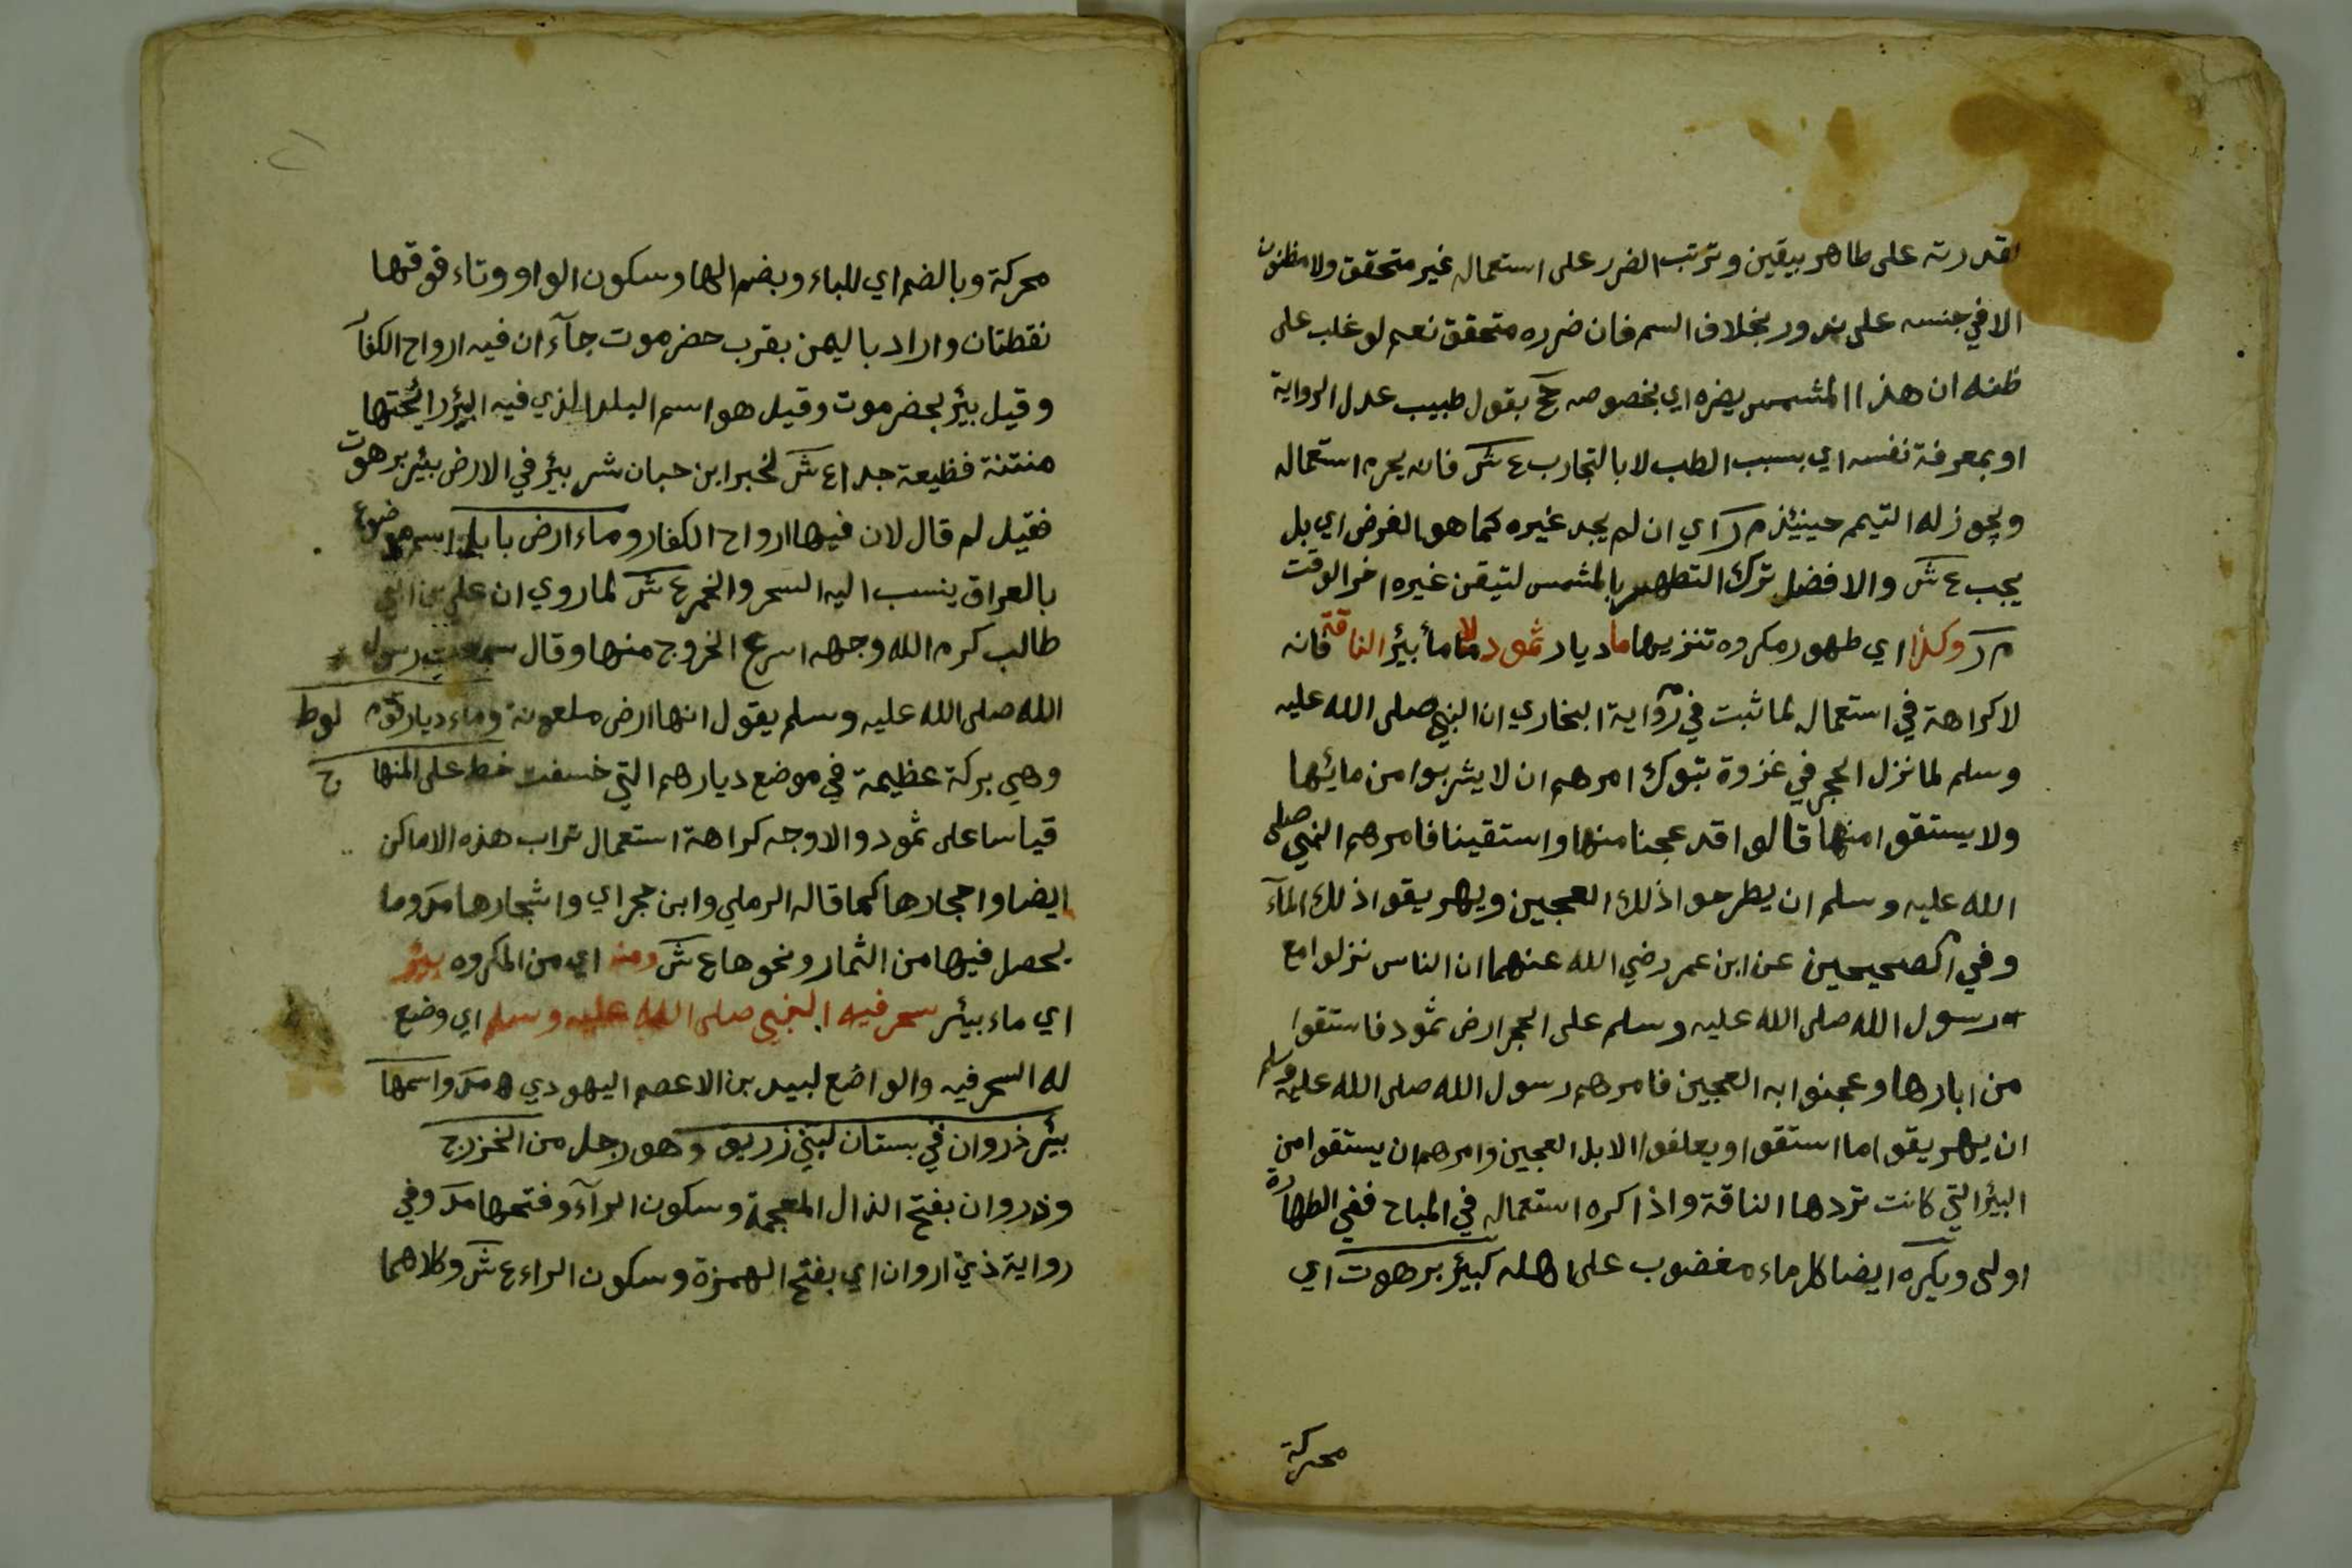 لقدرته على طاهر بيقين وترتب الضرر على استعماله غير متحقق ولا مظنون
الا في جنسه على ندور بخلاف السم فان ضرره متحقق نعم لو غلب على
ظنه ان هذا المشمس يضره اي بخصوصه حج بقول طبيب عدل الرواية
او بمعرفة نفسه اي بسبب الطب لا بالتجارب ع ش فانه يحرم استعماله
ويجوز له التيمم حينئذ م ر اي ان لم يجد غيره كما هو الفرض اي بل
يجب ع ش والافضل ترك التطهير بالمشمس لتيقن غيره اخر الوقت
م ر وكذا اي طهور مكروه تنزيها ما ديار ثمود لا ما بئير الناقة فانه
لا كراهة في استعماله لما ثبت في رواية البخاري ان النبي صلى الله عليه
وسلم لما نزل الحجر في غزوة تبوك امرهم ان لا يشربوا من مائها
ولا يستقوا منها قالوا قد عجنا منها واستقينا فامرهم النبي صلى
الله عليه وسلم ان يطرحوا ذلك العجين ويهريقوا ذلك المآء
وفي الصحيحين عن ابن عمر رضي الله عنهما ان الناس نزلوا مع
رسول الله صلى الله عليه وسلم على الحجر ارض ثمود فاستقوا
من ابارها وعجنوا به العجين فامرهم رسول الله صلى الله عليه وسلم
ان يهريقوا ما استقوا ويعلفوا الابل العجين وامرهم ان يستقوا من
البئر التي كانت تردها الناقة واذا كره استعماله في المباح ففي الطهارة
اولى ويكره ايضا كل ماء مغضوب على اهله كبئر برهوت اي
محركة
محركة وبالضم اي للباء وبضم الها وسكون الواو وتاء فوقها
نقطتان واراد باليمن بقرب حضرموت جآء ان فيه ارواح الكفار
وقيل بئير بحضرموت وقيل هو اسم البلد الذي فيه البئر رائحتها
منتنة فظيعة جدا ع ش لخبر ابن حبان شر بئير في الارض بئير برهوت
فقيل لم قال لان فيها ارواح الكفار وماء ارض بابل اسم موضع
بالعراق ينسب اليه السحر والخمر ع ش لما روي ان علي بن ابي
طالب كرم الله وجهه اسرع الخروج منها وقال سمعت رسول
الله صلى الله عليه وسلم يقول انها ارض ملعونة وماء ديار قوم لوط
وهي بركة عظيمة في موضع ديارهم التي خسفت خط على المنهاج
قياسا على ثمود والاوجه كراهة استعمال تراب هذه الاماكن
ايضا واحجارها كما قاله الرملي وابن حجر اي واشجارها م ر وما
يحصل فيها من الثمار ونحوها ع ش ومنه اي من المكروه بئر
اي ماء بيئر سحر فيه النبي صلى الله عليه وسلم اي وضع
له السحر فيه والواضع لبيد بن الاعصم اليهودي م ر واسمها
بئير ذروان في بستان لبني زريق وهو رجل من الخزرج
وذروان بفتح الذال المعجمة وسكون الرآء وفتحها م ر وفي
رواية ذي اروان اي بفتح الهمزة وسكون الراء ع ش وكلاهما